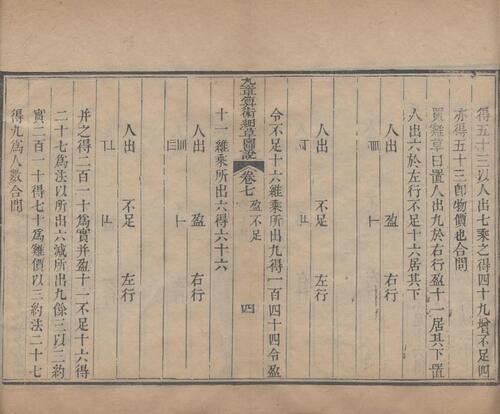 得五十三以人出七乘之得四十九增不足四
亦得五十三卽物價也合問
買雞草曰置人出九於右行盈十一居其下置
人出六於左行不足十六居其下
人出 盈 右行
人出 不足 左行
令不足十六維乘所出九得一百四十四令盈
九章算術細草圖說 卷七 盈不足 四
十一維乘所出六得六十六
人出 盈 右行
人出 不足 左行
并之得二百一十爲實并盈十一不足十六得
二十七爲法以所出六減所出九餘三以三約
實二百一十得七十爲雞價以三約法二十七
得九爲人數合問